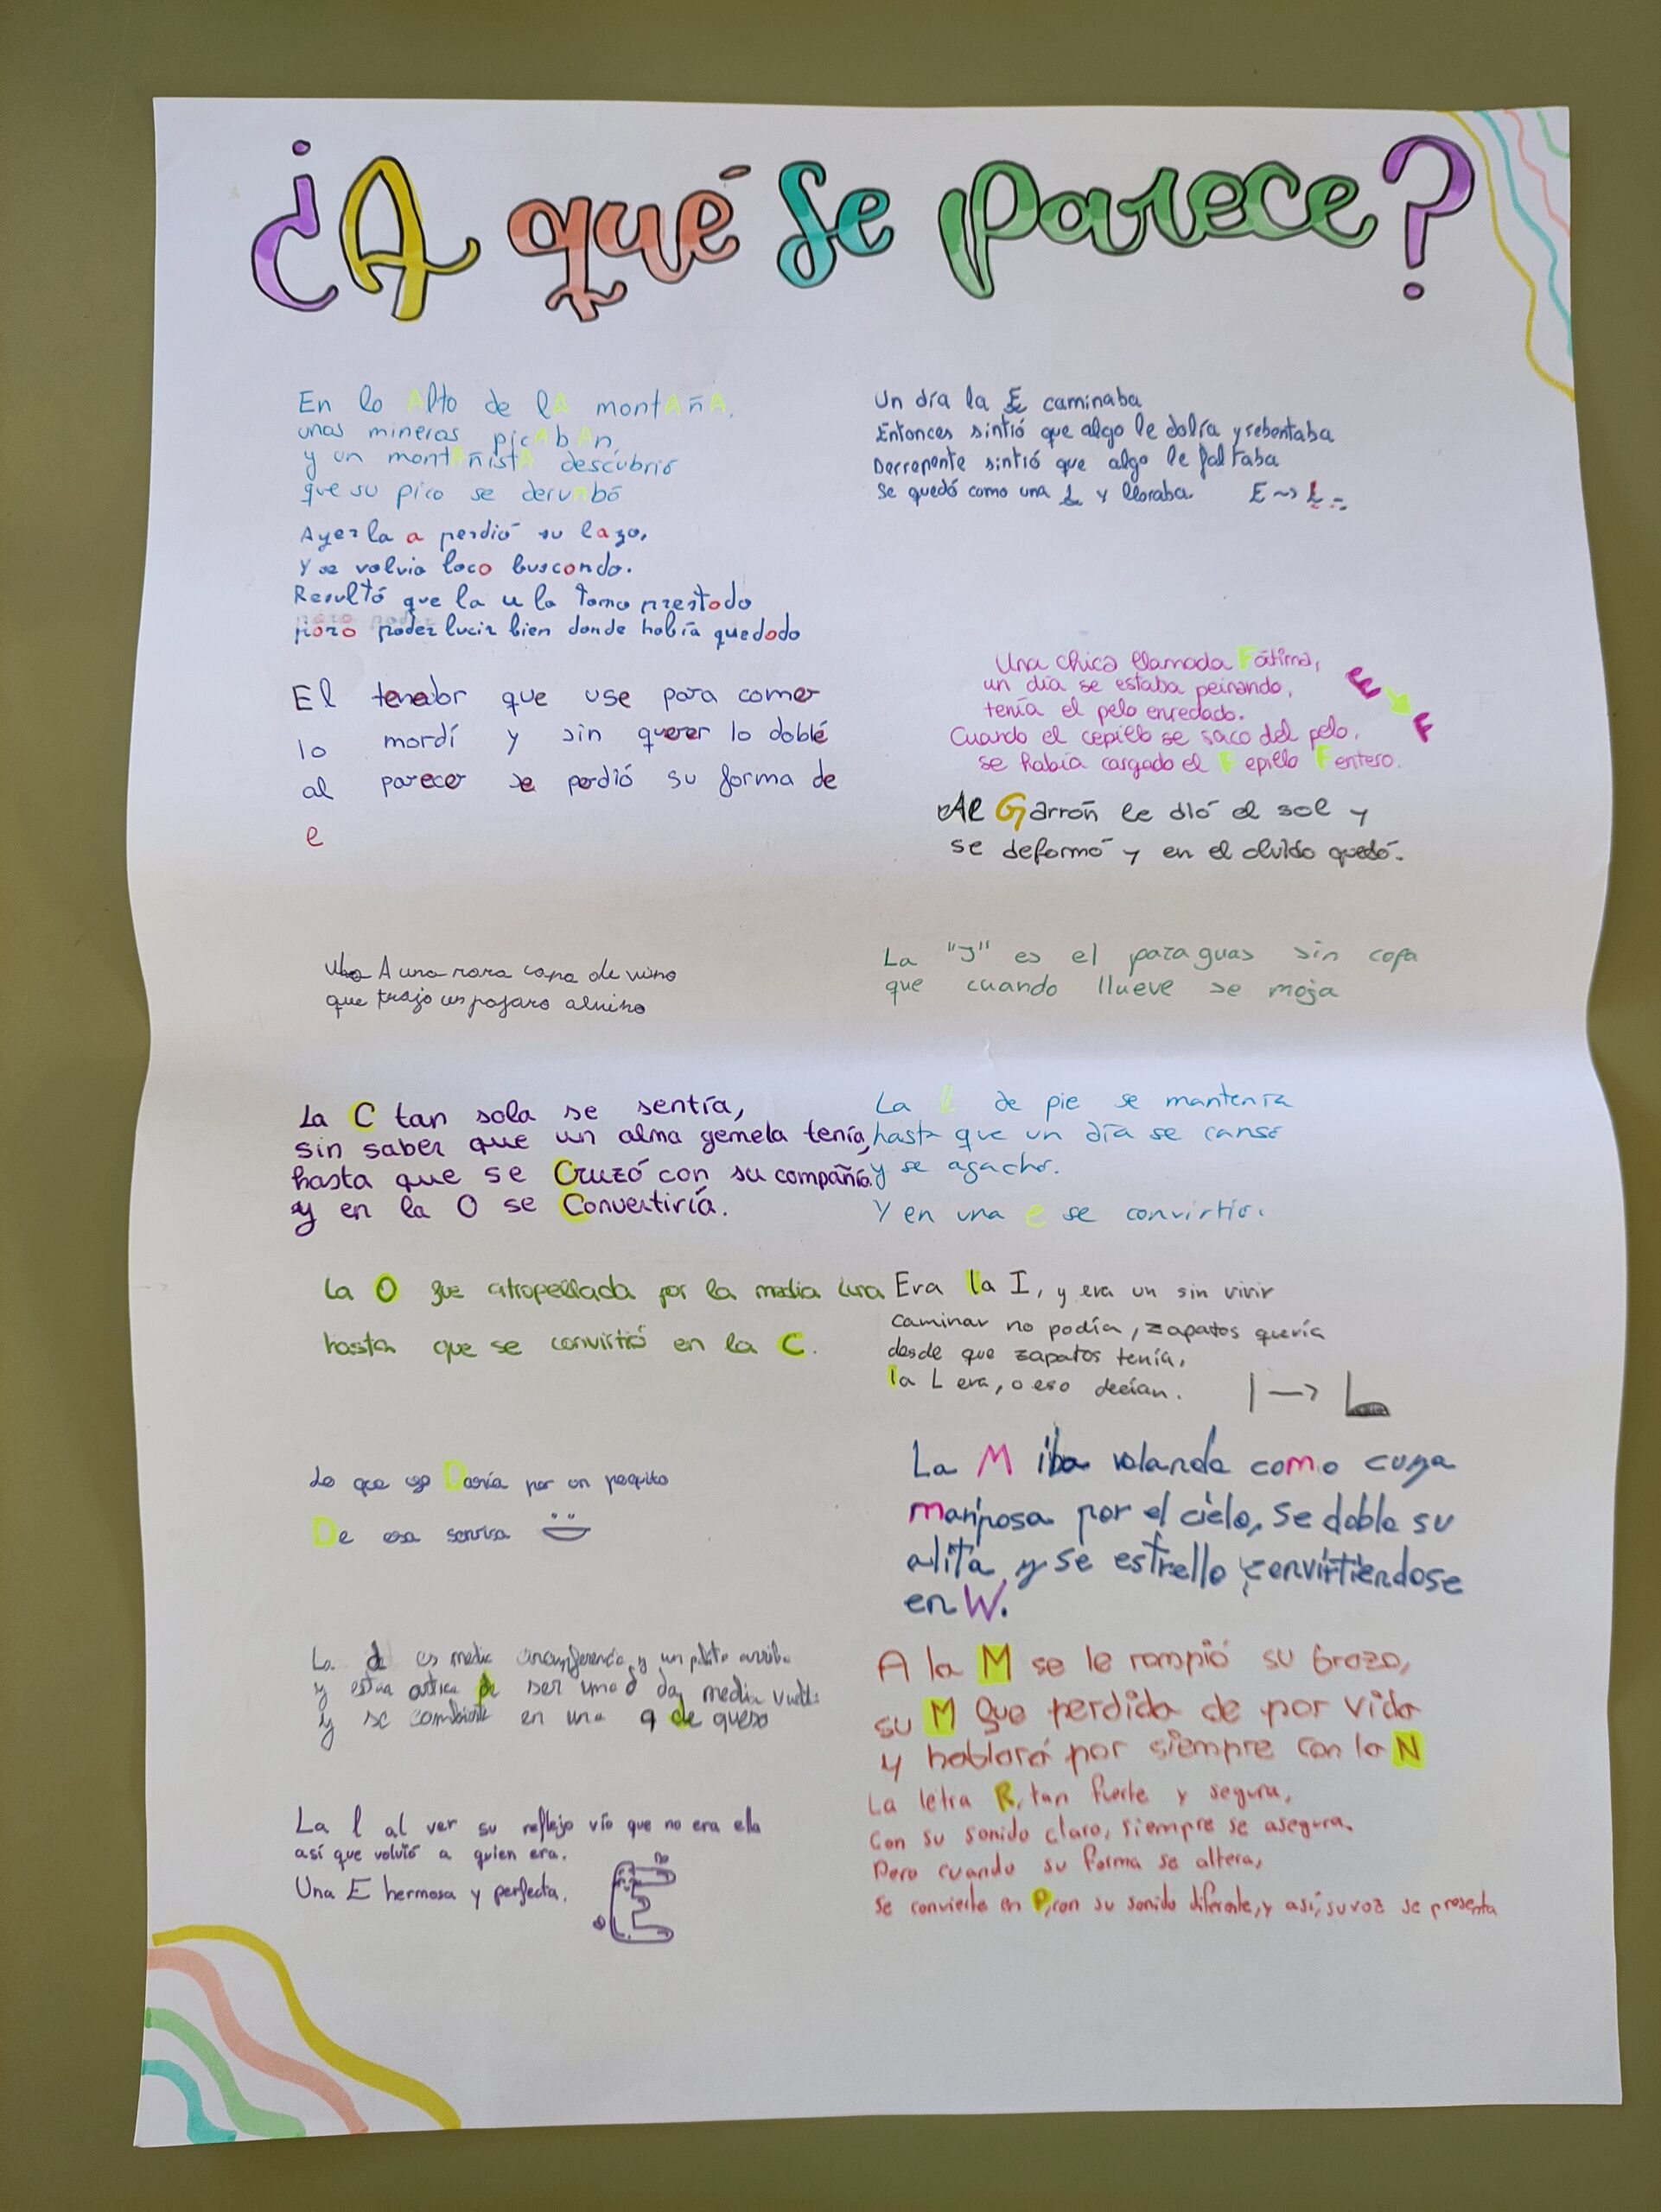 ¿A qué se parece?
En lo Alto de lA montAñA,
unas mineras picAbAn,
y un montAñistA descubrió
que su pico se derumbó
Ayer la a perdió su lazo,
Y se volvio loco buscondo.
Resultó que la u lo tomo prestodo
poro poder lucir bien donde había quedodo
El tenedor que use para comer
lo mordí y sin querer lo doblé
al parecer se perdió su forma de
e
A una rara copa de vino
que trajo un pajaro
La C tan sola se sentía,
sin saber que un alma gemela tenía,
hasta que se Cruzó con su compañía
y en la O se Convertiría.
La O fue atropellada por la media luna
hasta que se convirtió en la C.
Lo que yo Daría por un poquito
De esa sonrisa
La d es media circunferencia y un palito arriba
y ser una d da media vuelta
y se en una q de queso
La l al ver su reflejo vío que no era ella
así que volvió a quien era.
Una E hermosa y perfecta.
E
Un día la E caminaba
Entonces sintió que algo le dolía y rebentaba
Derrepente sintió que algo le faltaba
Se quedó como una L y lloraba. E ~> L
Una chica llamada Fátima,
un día se estaba peinando,
tenía el pelo enredado.
Cuando el cepillo se saco del pelo,
se había cargado el Fepillo Fentero.
E
F
Al Garrón le dió el sol y
se deformó y en el olvido quedó.
La "J" es el paraguas sin copa
que cuando llueve se moja
La L de pie se mantenía
hasta que un día se cansó
y se agachó.
Y en una e se convirtió.
Era la I, y era un sin vivir
caminar no podía, zapatos quería
desde que zapatos tenía,
la L era, o eso decían. I —> L
La M iba volando como cuya
mariposa por el cielo, se doblo su
alita y se estrello convirtiendose
en W.
A la M se le rompió su brazo,
su M fue perdida de por vida
y hablará por siempre con la N
La letra R, tan fuerte y segura,
Con su sonido claro, siempre se asegura.
Pero cuando su forma se altera,
Se convierte en P, con su sonido diferente, y así, su voz se presenta